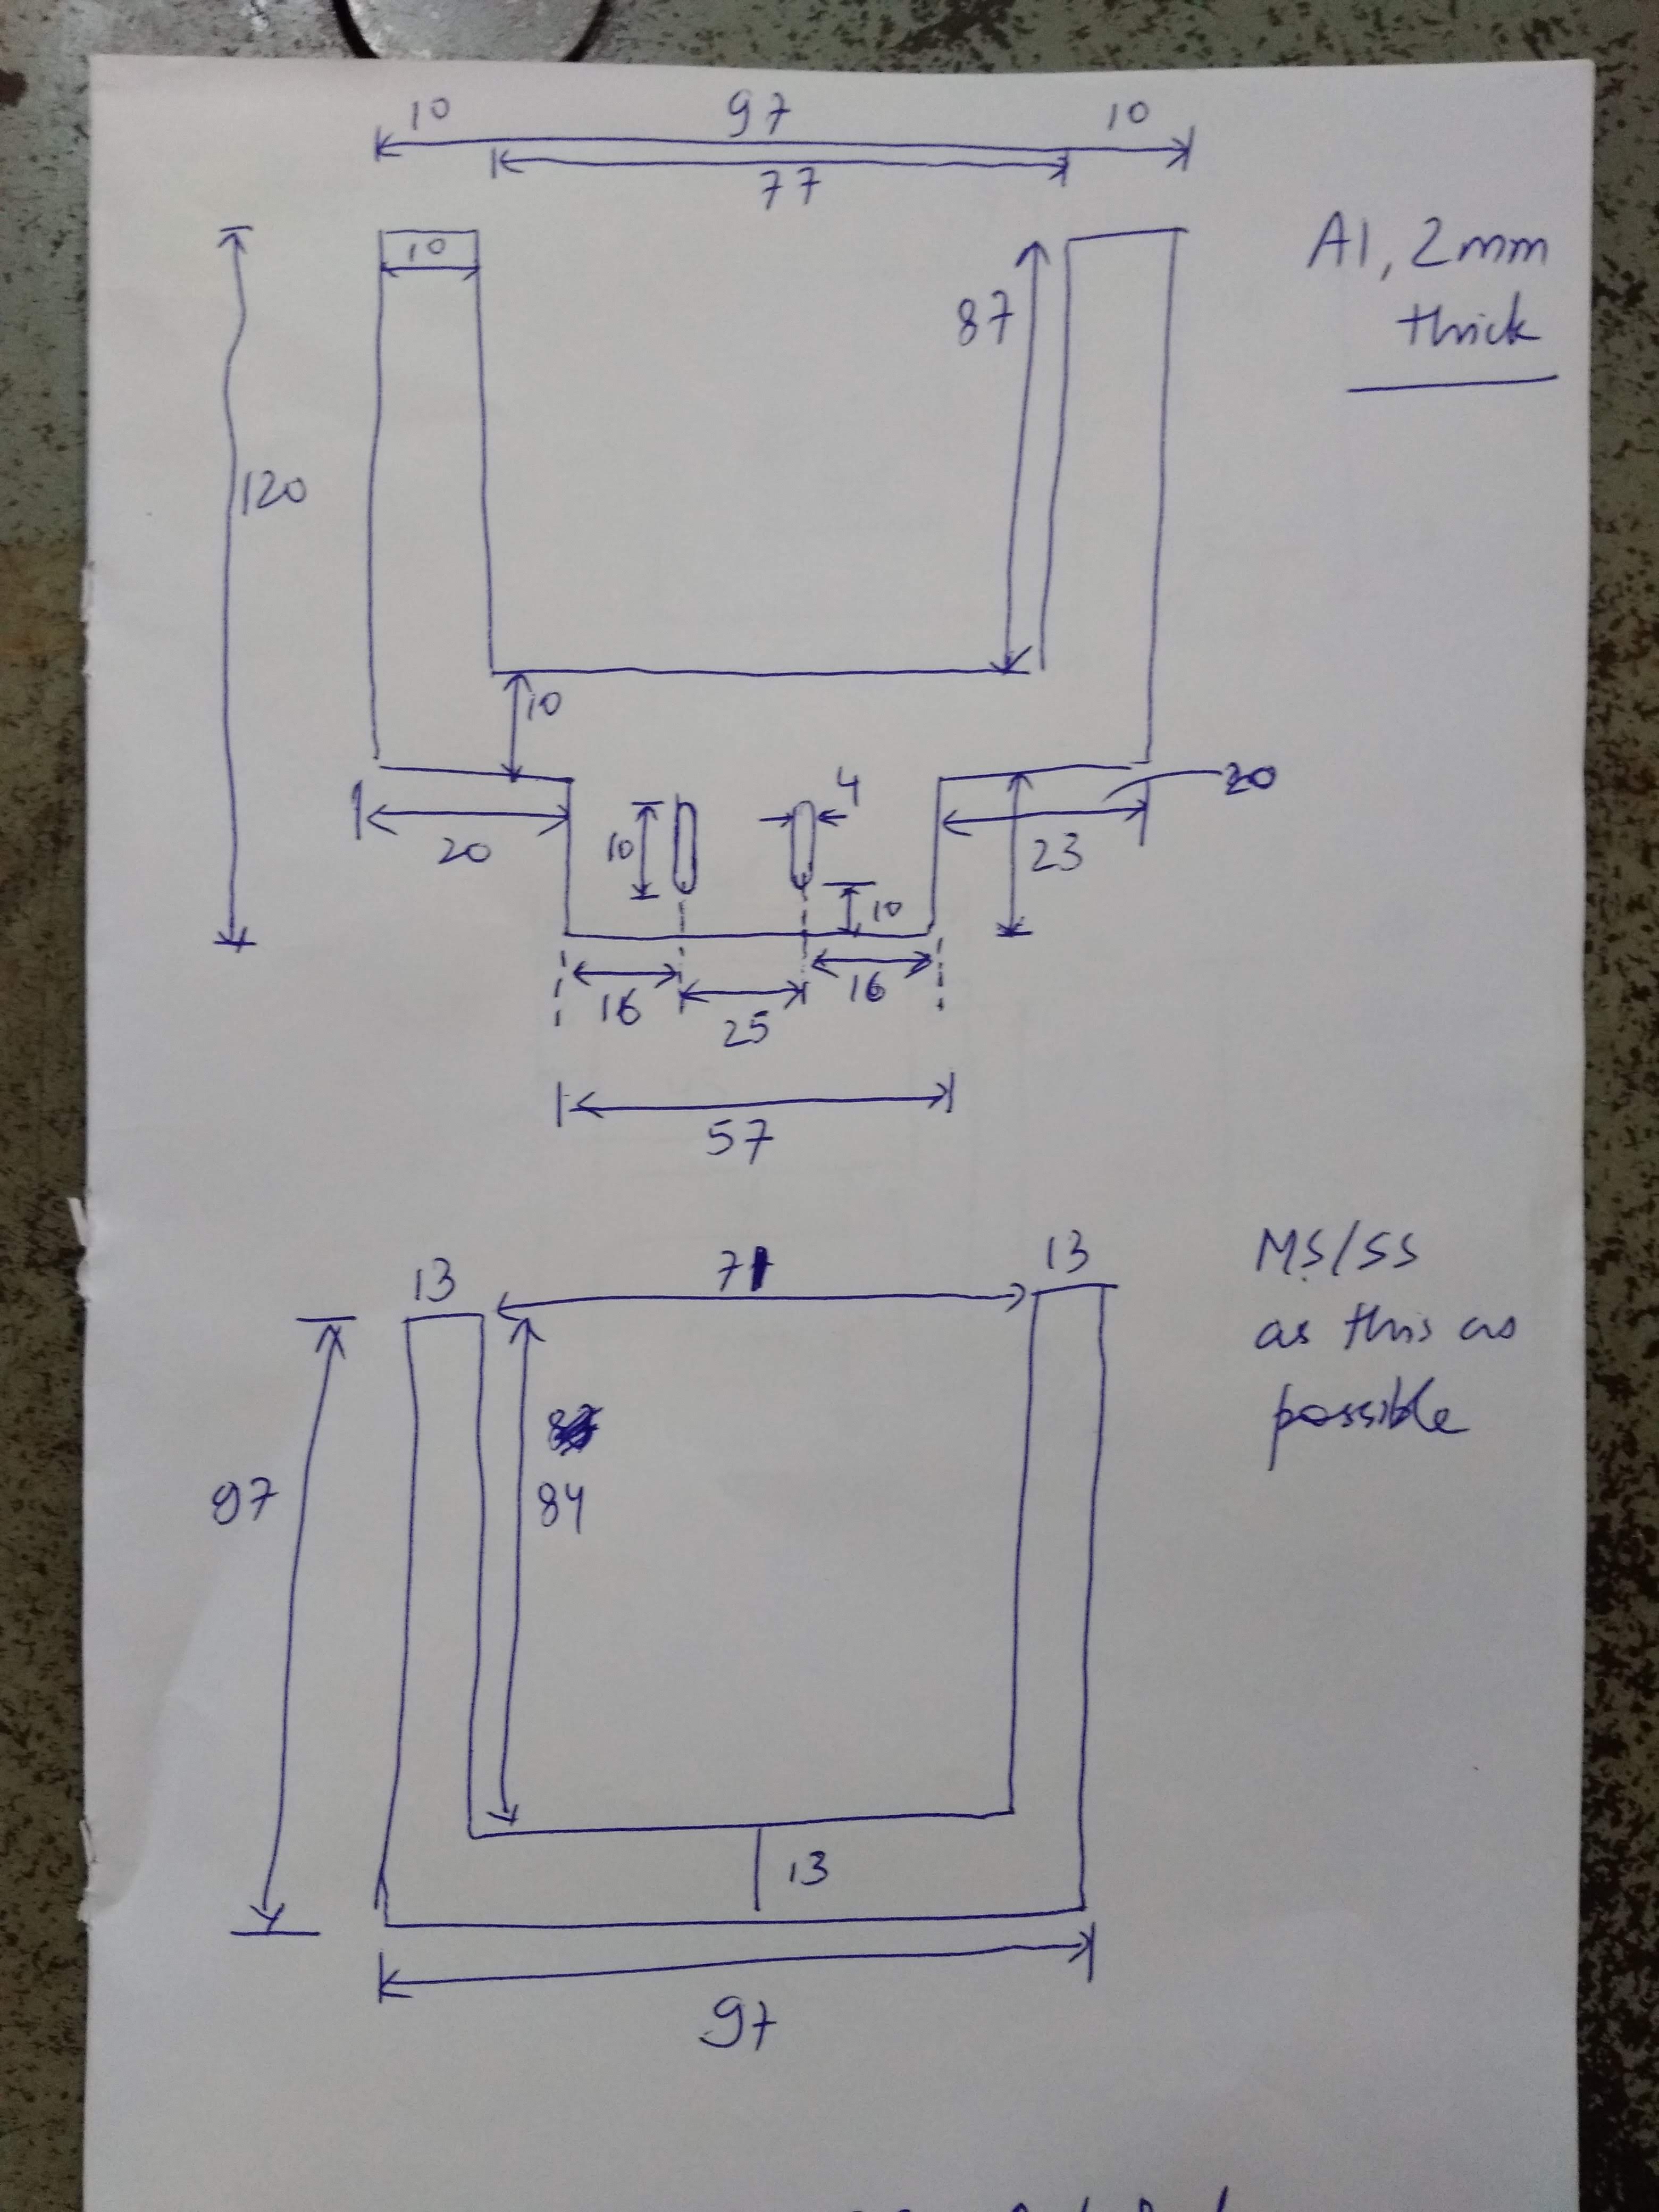 10 97 10
77
10
Al, 2mm
thick
87
120
10
20
4
10
20
23
10
16
25
16
57
13
71
13
MS/SS
as this as
possible
84
97
13
97